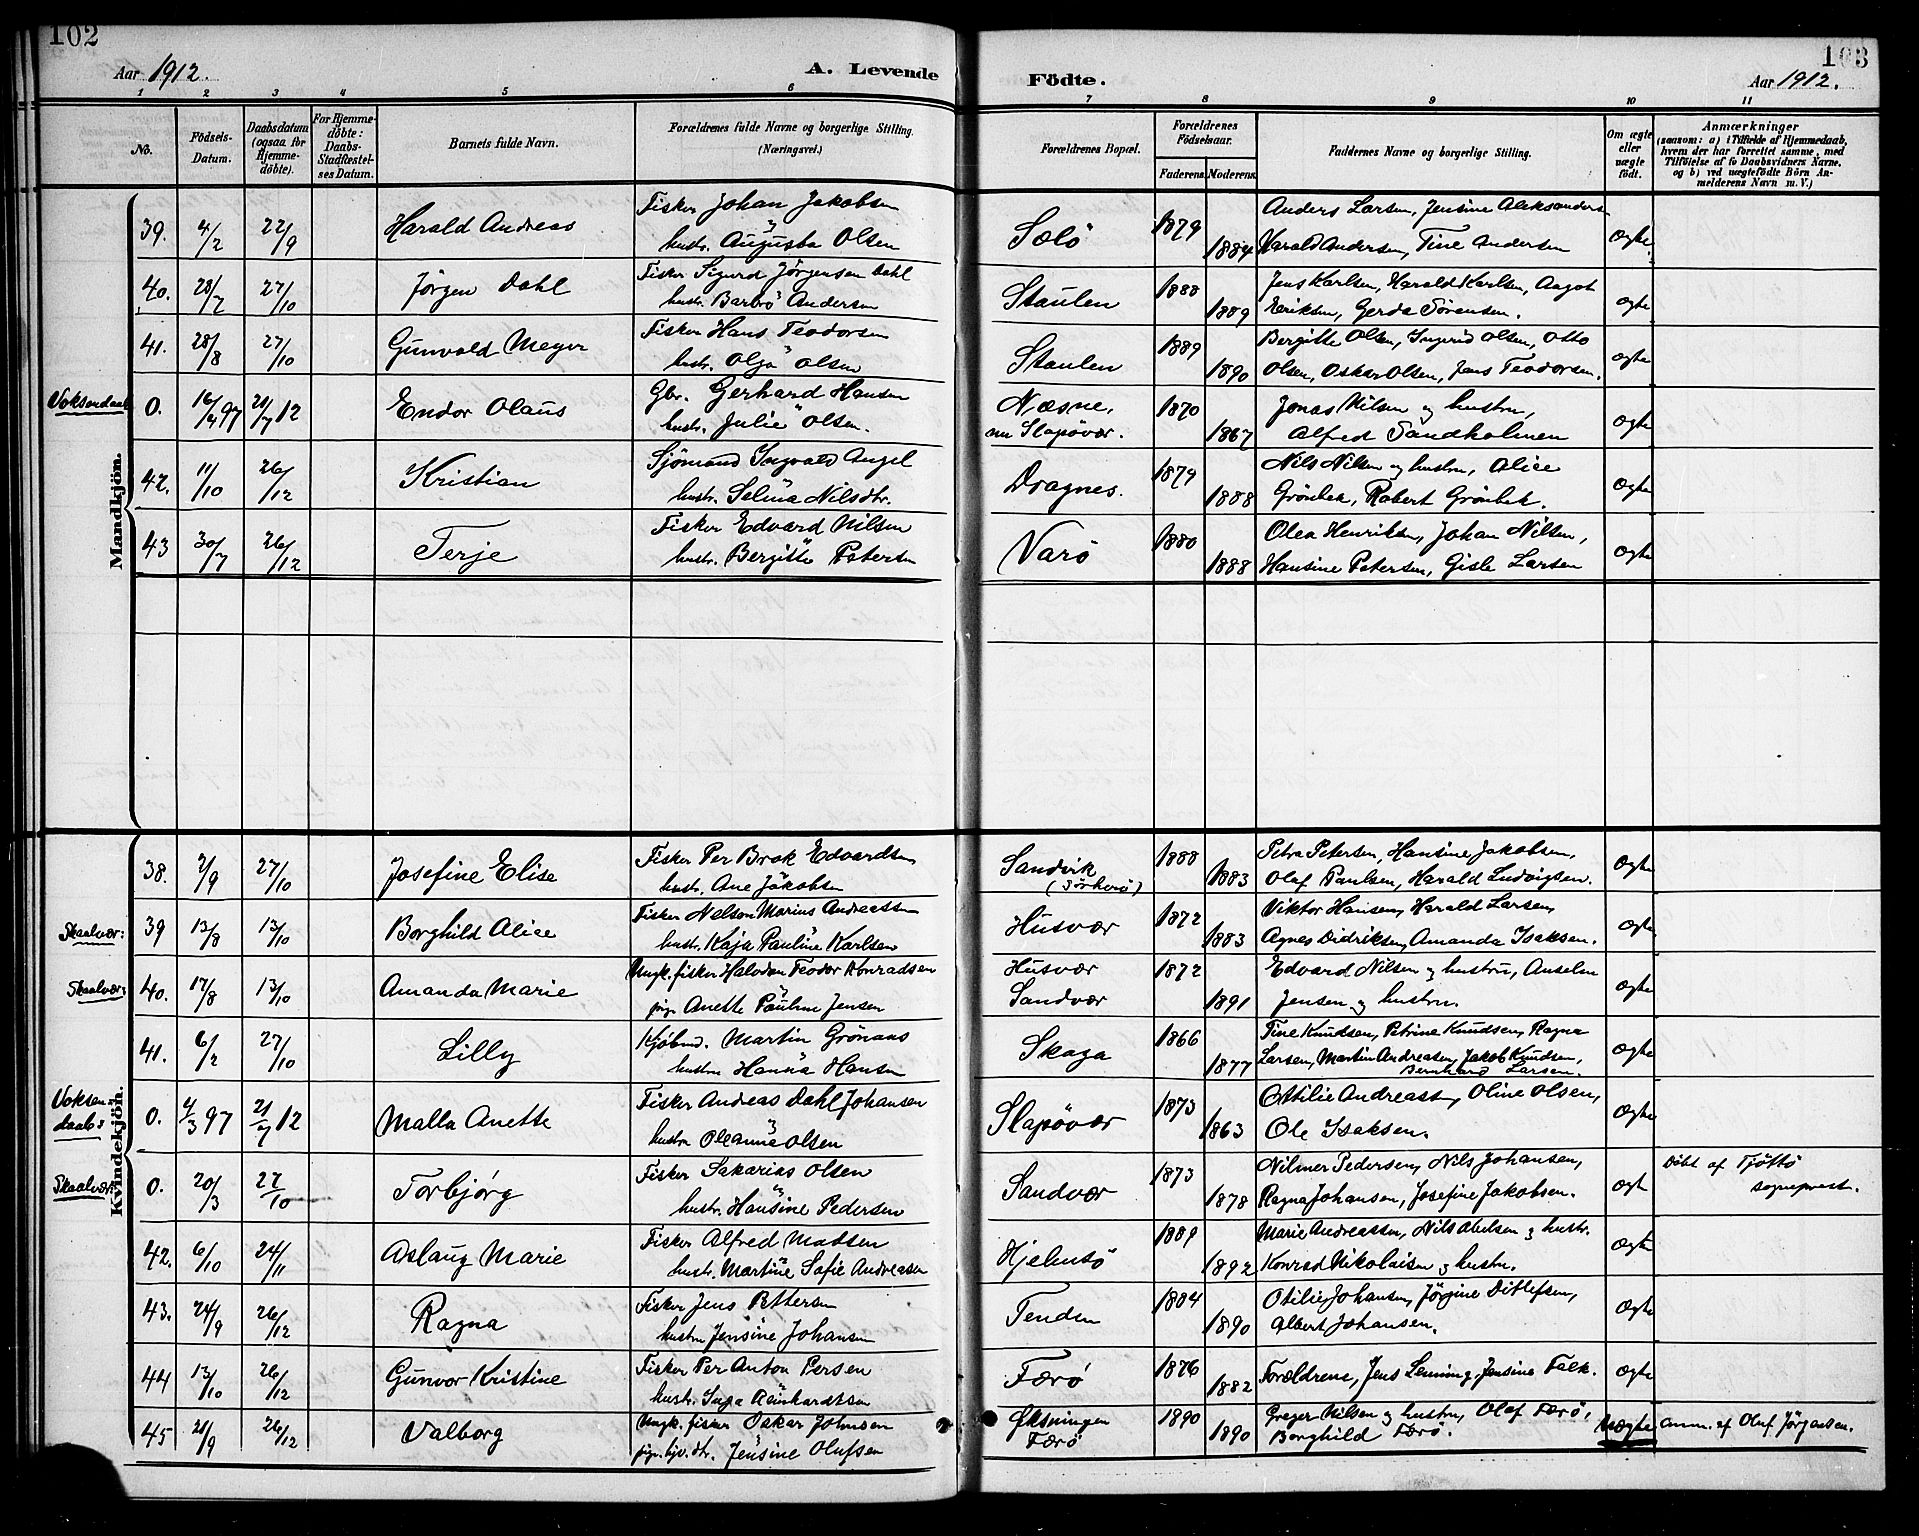 102
Aar 1912.
A. Levende
1 2 3 4 5 6
No.
Födsels-Datum.
Daabsdatum (ogsaa for Hjemme-döbte).
For Hjemme-döbte: Daabs-Stadfæstel-ses Datum.
Barnets fulde Navn.
Forældrenes fulde Navne og borgerlige Stilling.
(Næringsvei.)
103
Födte.
Aar 1912.
7 8 9 10 11
Forældrenes Bopæl.
Forældrenes Födselsaar.
Faderens. Moderens.
Faddernes Navne og borgerlige Stilling.
Om ægte eller uægte födt.
Anmærkninger
(saasom: a) i Tilfælde af Hjemmedaab,
hvem der har forrettet samme, med
Tilföielse af to Daabsvidners Navne,
og b) ved uægtefödte Börn An-
melderens Navn m. V.)
Mandkjön.
39. 4/2 22/9 Harald Andreas Fisker Johan Jakobsen
hustr. Augusta Olsen
Sölö 1879 1884 Anders Larsen, Jensine Aleksandersen
Harald Andersen, Tine Andersen ægte
40. 28/7 27/10 Jörgen Dahl Fisker Sigurd Jörgensen Dahl
hustr. Barbro Andersen
Staulen 1888 1889 Jens Karlsen, Harald Karlsen, Aagot
Eriksen, Gerda Sörensen. ægte
41. 28/8 27/10 Gunvald Meyer Fisker Hans Teodorsen
hustr. Olga Olsen
Staulen 1889 1890 Bergitte Olsen, Ingrid Olsen, Otto
Olsen, Oskar Olsen, Jens Teodorsen. ægte
Voksendaab 0. 16/4 97 21/7 12 Endor Olaus Gbr. Gerhard Hansen
hustr. Julie Olsen.
Næsne, nu Slapövær. 1870 1867 Jonas Nilsen og hustru,
Alfred Sandholmen ægte
42. 11/10 26/12 Kristian Sjömand Ingvald Angel
hustr. Selma Nilsdtr.
Dragnes. 1879 1888 Nils Nilsen og hustru, Alice
Grönbek, Robert Grönbek. ægte
43 30/7 26/12 Terje Fisker Edvard Nilsen
hustr. Bergitte Petersen
Varö 1880 1888 Olea Henriksen, Johan Nilsen,
Hansine Petersen, Gisle Larsen ægte
Kvindekjön.
38. 2/9 27/10 Josefine Elise Fisker Per Brok Edvardsen
hustr. Ane Jakobsen
Sandvik 1888 1883 Petra Petersen, Hansine Jakobsen,
Olaf Paulsen, Harald Ludvigsen. ægte
Skaalvær: 39 13/8 13/10 Borghild Alice Fisker Nelson Marius Andreassen
hustr. Kaja Pauline Karlsen
Husvær 1872 1883 Viktor Hansen, Harald Larsen,
Agnes Didriksen, Amanda Isaksen. ægte
Skaalvær: 40. 17/8 13/10 Amanda Marie Ungk. fisker Halvdan Teodor Konradsen
pige Anette Pauline Jensen
Husvær
Sandvær 1872 1891 Edvard Nilsen og hustru, Anselm
Jensen og hustru. ægte
41. 6/2 27/10 Lilly Kjöbmd. Martin Grönaas
hustru Hanna Hansen
Skaga 1866 1877 Tine Knudsen, Petrine Knudsen, Ragna
Larsen, Martin Andreasen, Jakob Knudsen,
Bernhard Larsen. ægte
Voksendaab: 0. 4/3 97 21/7 12 Malla Anette Fisker Andreas Dahl Johansen
hustru Oleanne Olsen
Slapövær 1873 1863 Ottilie Andreassen, Oline Olsen,
Ole Isaksen. ægte
Skaalvær: 0. 20/3 27/10 Torbjörg Fisker Sakarias Olsen
hustr. Hansine Pedersen
Sandvær 1873 1878 Nilmer Pedersen, Nils Johansen,
Ragna Johansen, Josefine Jakobsen. ægt Döbt af Tjöttö
sogneprest.
42. 6/10 24/11 Aslaug Marie Fisker Alfred Madsen
hustr. Martine Sofie Andreasen
Hjelmsö 1889 1892 Marie Andreassen, Nils Abelsen og hustr.
Konrad Nikolaisen og hustru. ægte
43. 24/9 26/12 Ragna Fisker Jens Pettersen
hustru Jensine Johansen
Tenden 1884 1890 Otilie Johansen, Jörgine Ditlefsen,
Albert Johansen. ægte
44 13/10 26/12 Gunvor Kristine Fisker Per Anton Persen
hustr. Inga Reinhardtsen
Færö 1876 1882 Forældrene, Jens Lenning, Jensine Falk. ægte
45 21/9 26/12 Valborg Ungk. fisker Oskar Johnsen
pige, hjv. dtr. Jensine Olufsen
Öksningen
Færö 1890 1890 Greger Nilsen og hustru, Olaf Færö,
Borghild Færö. Uægte anm. af Oluf Jörgensen.